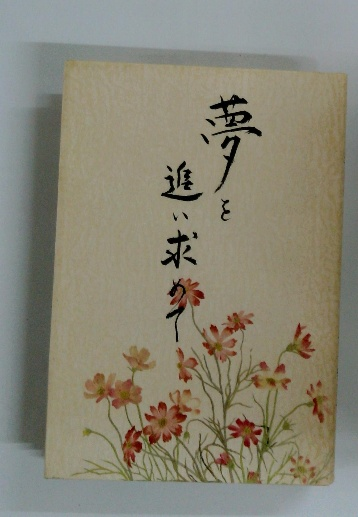 夢を
追い求めて